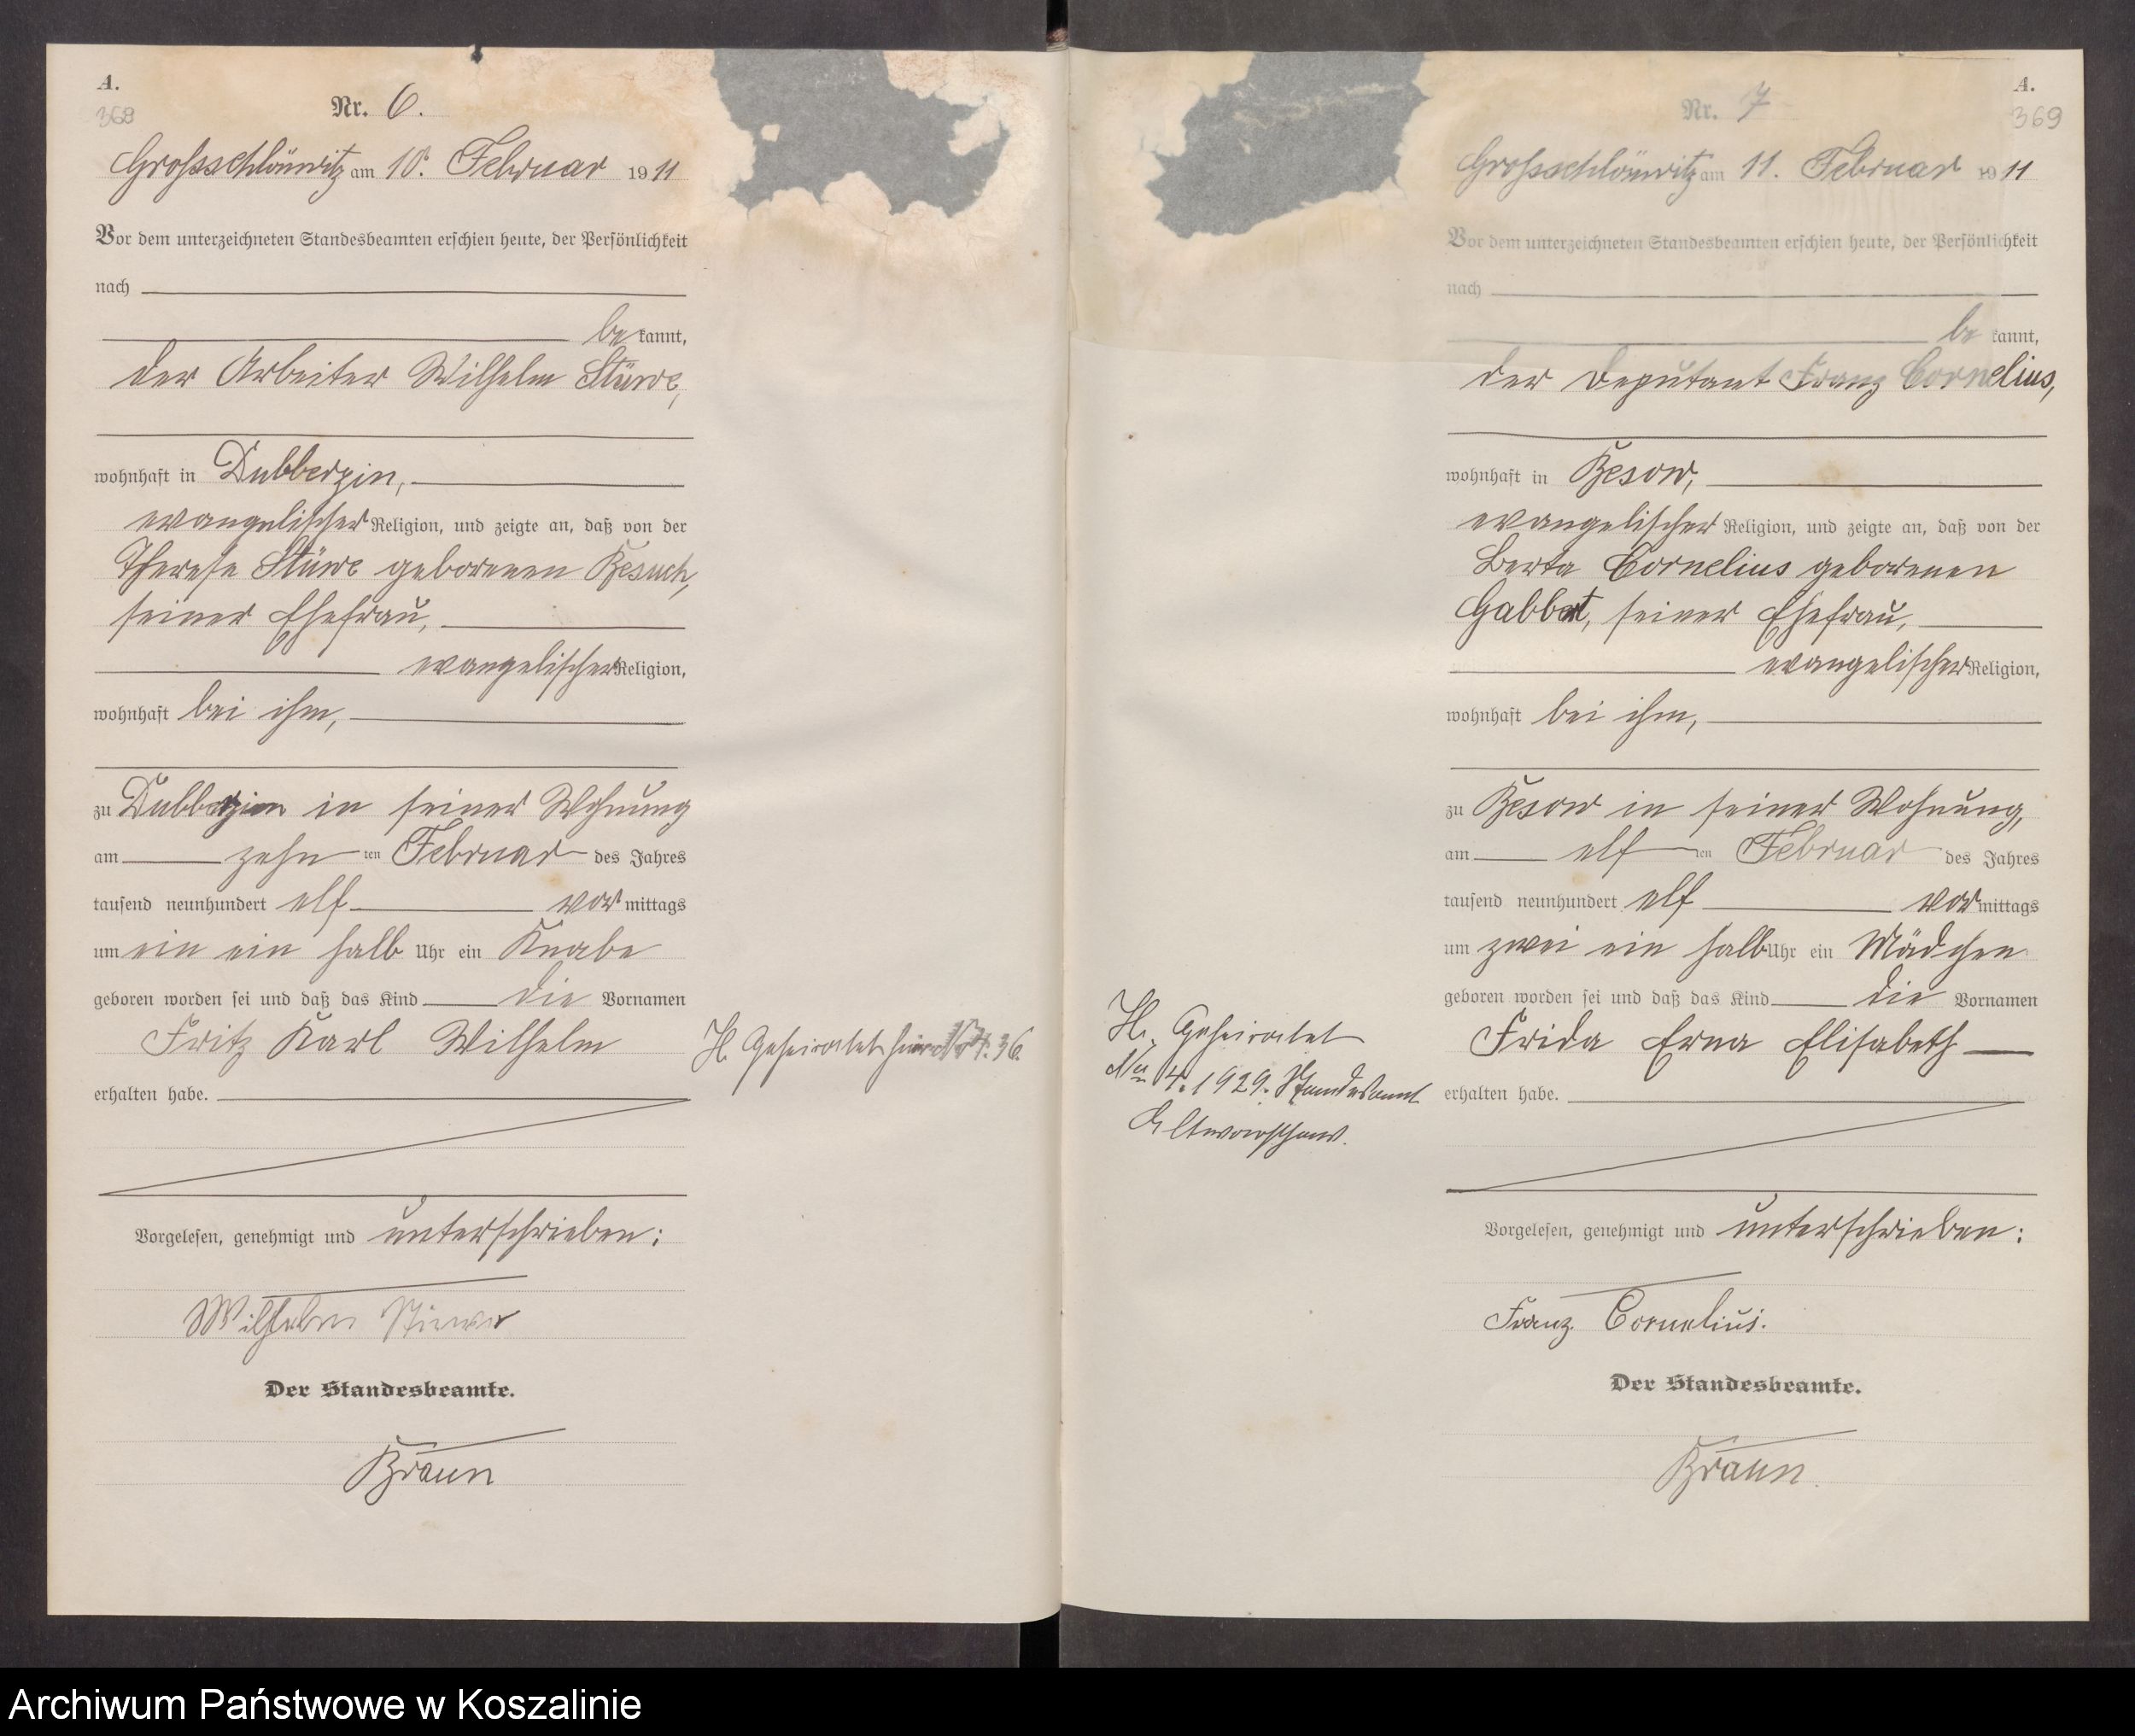 A.
368
Nr. 6.
Grossschlönwitz am 10. Februar 1911
Vor dem unterzeichneten Standesbeamten erschien heute, der Persönlichkeit
nach
be kannt,
der Arbeiter Wilhelm Stüwe,
wohnhaft in Dubberzin,
evangelischer Religion, und zeigte an, daß von der
Therese Stüwe geborenen Besuch,
seiner Ehefrau,
evangelischer Religion,
wohnhaft bei ihm,
zu Dubberzin in seiner Wohnung
am zehn ten Februar des Jahres
tausend neunhundert elf vor mittags
um ein ein halb Uhr ein Knabe
geboren worden sei und daß das Kind die Vornamen
Fritz Karl Wilhelm
H. Geheiratet hier 36.
erhalten habe.
Vorgelesen, genehmigt und unterschrieben:
Wilhelm
Der Standesbeamte.
Braun
A.
369
Nr. 7
Grossschlönwitz am 11. Februar 1911
Vor dem unterzeichneten Standesbeamten erschien heute, der Persönlichkeit
nach
be kannt,
der Deputant Franz Cornelius,
wohnhaft in Besow,
evangelischer Religion, und zeigte an, daß von der
Berta Cornelius geborenen
Gabbat, seiner Ehefrau,
evangelischer Religion,
wohnhaft bei ihm,
zu Besow in seiner Wohnung,
am elf ten Februar des Jahres
tausend neunhundert elf vor mittags
um zwei ein halb Uhr ein Mädchen
geboren worden sei und daß das Kind die Vornamen
Frida Erna Elisabeth
erhalten habe.
H. Geheiratet
No 4. 1929. Standesamt
Altwarschow.
Vorgelesen, genehmigt und unterschrieben:
Franz Cornelius.
Der Standesbeamte.
Braun
Archiwum Państwowe w Koszalinie